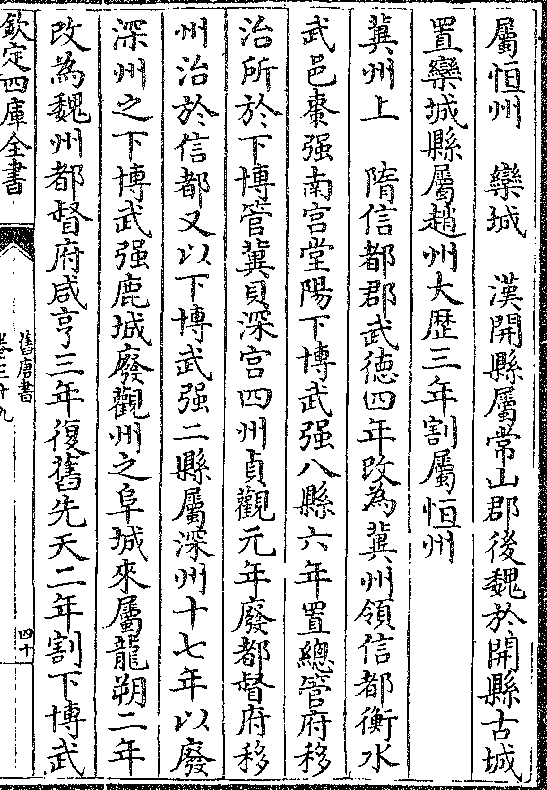 屬恒州　欒城　漢開縣屬常山郡後魏於開縣古城
置欒城縣屬趙州大歷三年割屬恒州
冀州上　隋信都郡武徳四年改為冀州領信都衡水
武邑棗强南宫堂陽下博武强八縣六年置總管府移
治所於下博管冀貝深宫四州貞觀元年廢都督府移
州治於信都又以下博武强二縣屬深州十七年以廢
深州之下博武强鹿城廢觀州之阜城來屬龍朔二年
改為魏州都督府咸亨三年復舊先天二年割下博武
欽定四庫全書
舊唐書
卷三十九
四十